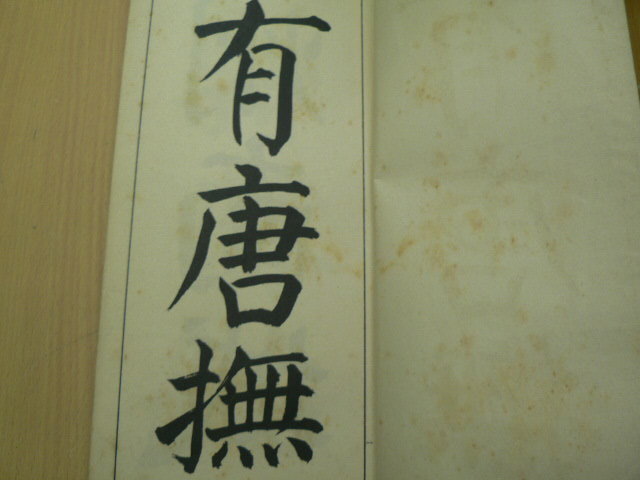 有唐撫